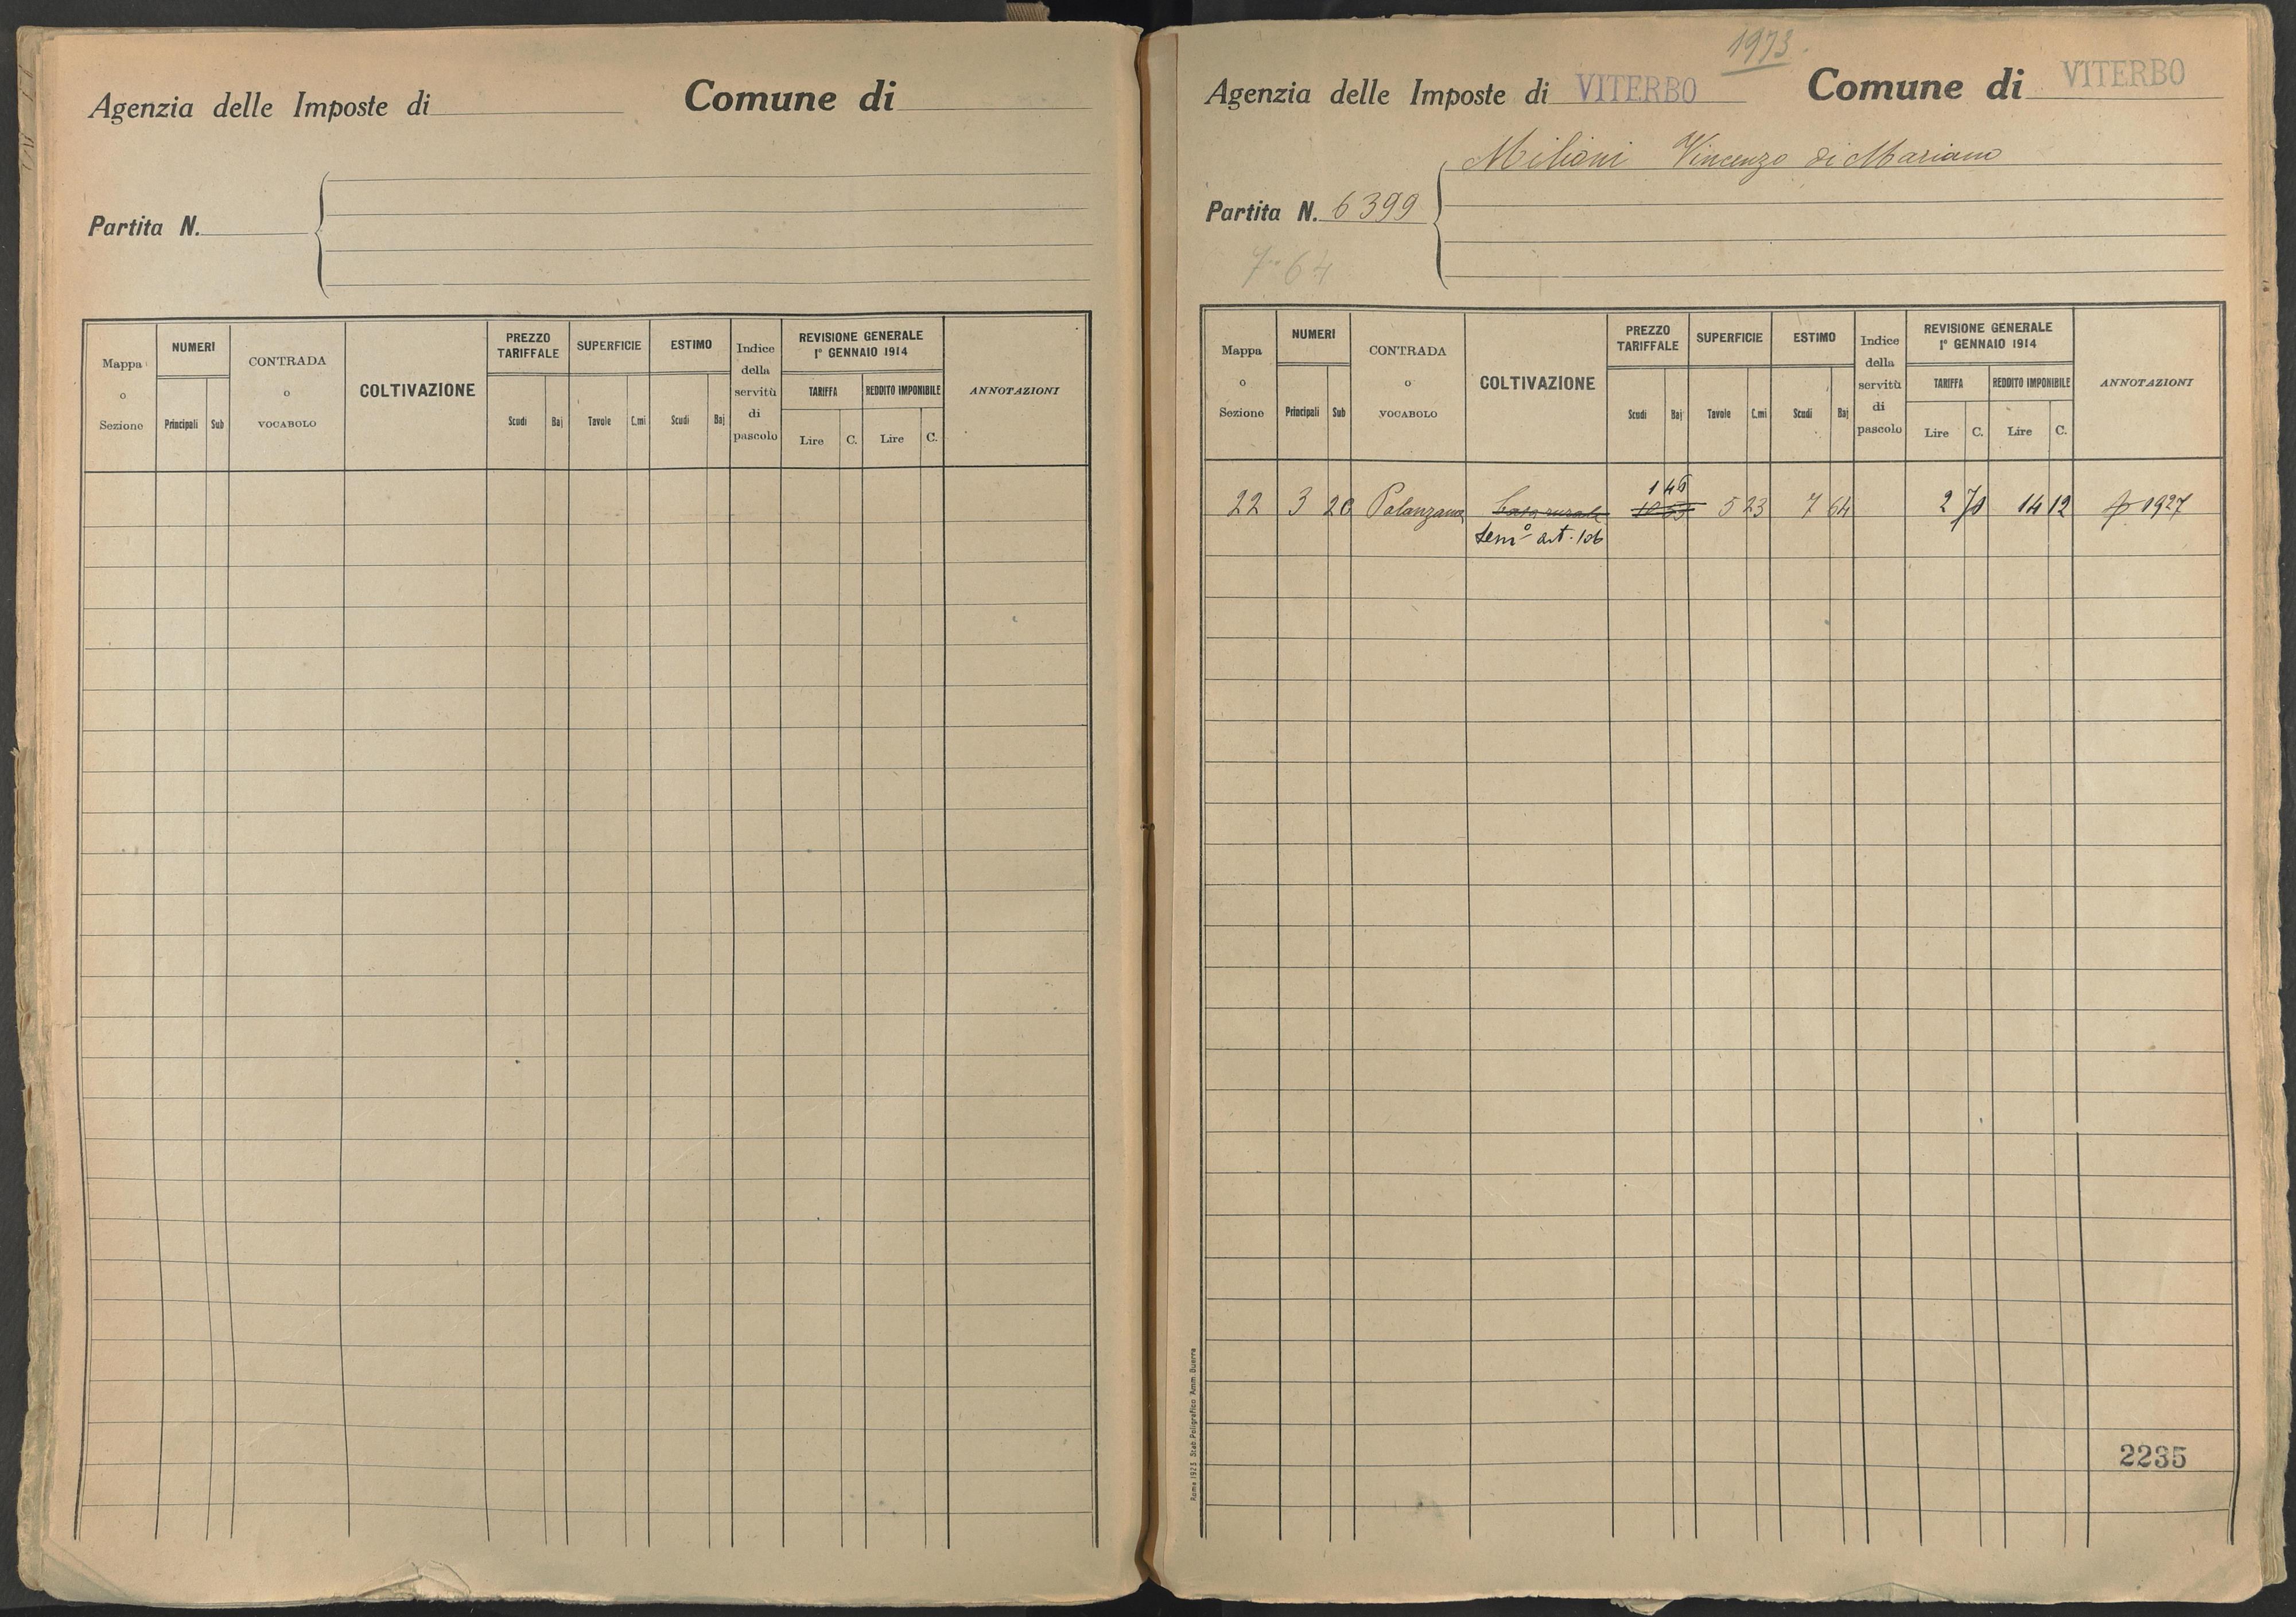 Agenzia delle Imposte di Comune di
Partita N.
Mappa o Sezione NUMERI Principali Sub CONTRADA o VOCABOLO COLTIVAZIONE PREZZO TARIFFALE Scudi Baj SUPERFICIE Tavole C.mi ESTIMO Scudi Baj Indice della servitù di pascolo REVISIONE GENERALE 1º GENNAIO 1914 TARIFFA Lire C. REDDITO IMPONIBILE Lire C. ANNOTAZIONI
1973.
Agenzia delle Imposte di VITERBO Comune di VITERBO
Milioni Vincenzo di Mariano
Partita N. 6399
7-64
Mappa o Sezione NUMERI Principali Sub CONTRADA o VOCABOLO COLTIVAZIONE PREZZO TARIFFALE Scudi Baj SUPERFICIE Tavole C.mi ESTIMO Scudi Baj Indice della servitù di pascolo REVISIONE GENERALE 1º GENNAIO 1914 TARIFFA Lire C. REDDITO IMPONIBILE Lire C. ANNOTAZIONI
1 46
22 3 20 Palanzana Casa rurale 5 23 7 64 2 70 14 12 1927
Semº art. 106
2235
Roma 1923 Stab. Poligrafico Amm. Guerra